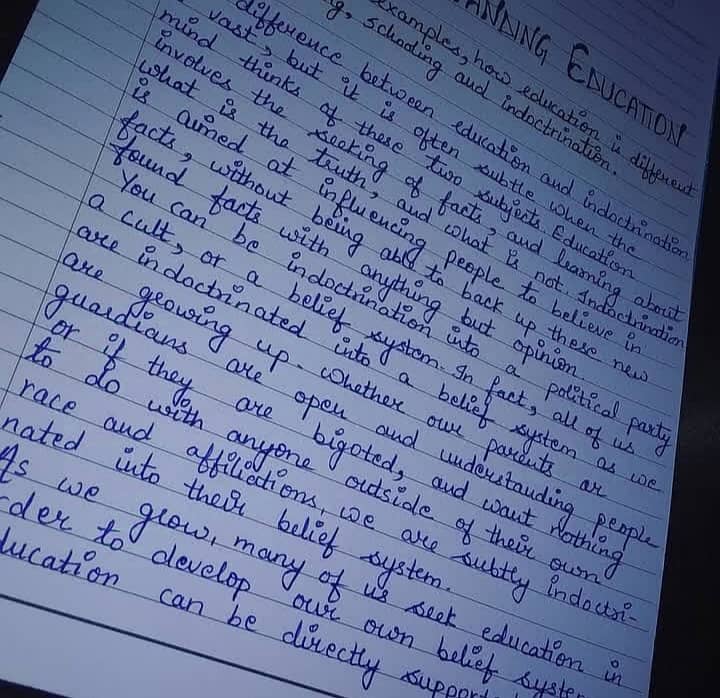 ANNING EDUCATION
examples, how education is different
g, schooling and indoctrination.
difference between education and indoctrination
vast, but it is often subtle when the
mind thinks of these two subjects. Education
involves the seeking of facts, and learning about
what is the truth, and what is not. Indoctrination
is aimed at influencing people to believe in
facts, without being able to back up these new
found facts with anything but opinion.
You can be indoctrination into a political party
a cult, or a belief system. In fact, all of us
are indoctrinated into a belief system as we
are growing up. Whether our parents or
guardians are open and understanding people
or if they are bigoted, and want nothing
to do with anyone outside of their own
race and affiliations, we are subtly indoctri-
nated into their belief system.
As we grow, many of us seek education in
rder to develop our own belief syste
ducation can be directly suppor